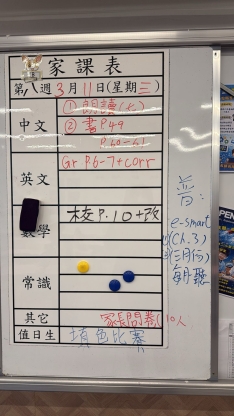 家課表
第八週3月11日(星期三)
中文
① 朗讀(七)
② 書P.49
P.60-61
英文
Gr P.6-7+corr
數學
校P.10+改
常識
其它
家長問卷(10人
值日生
填色比賽
普:
e-smart
(Ch.3)
(三月份)
每月聽